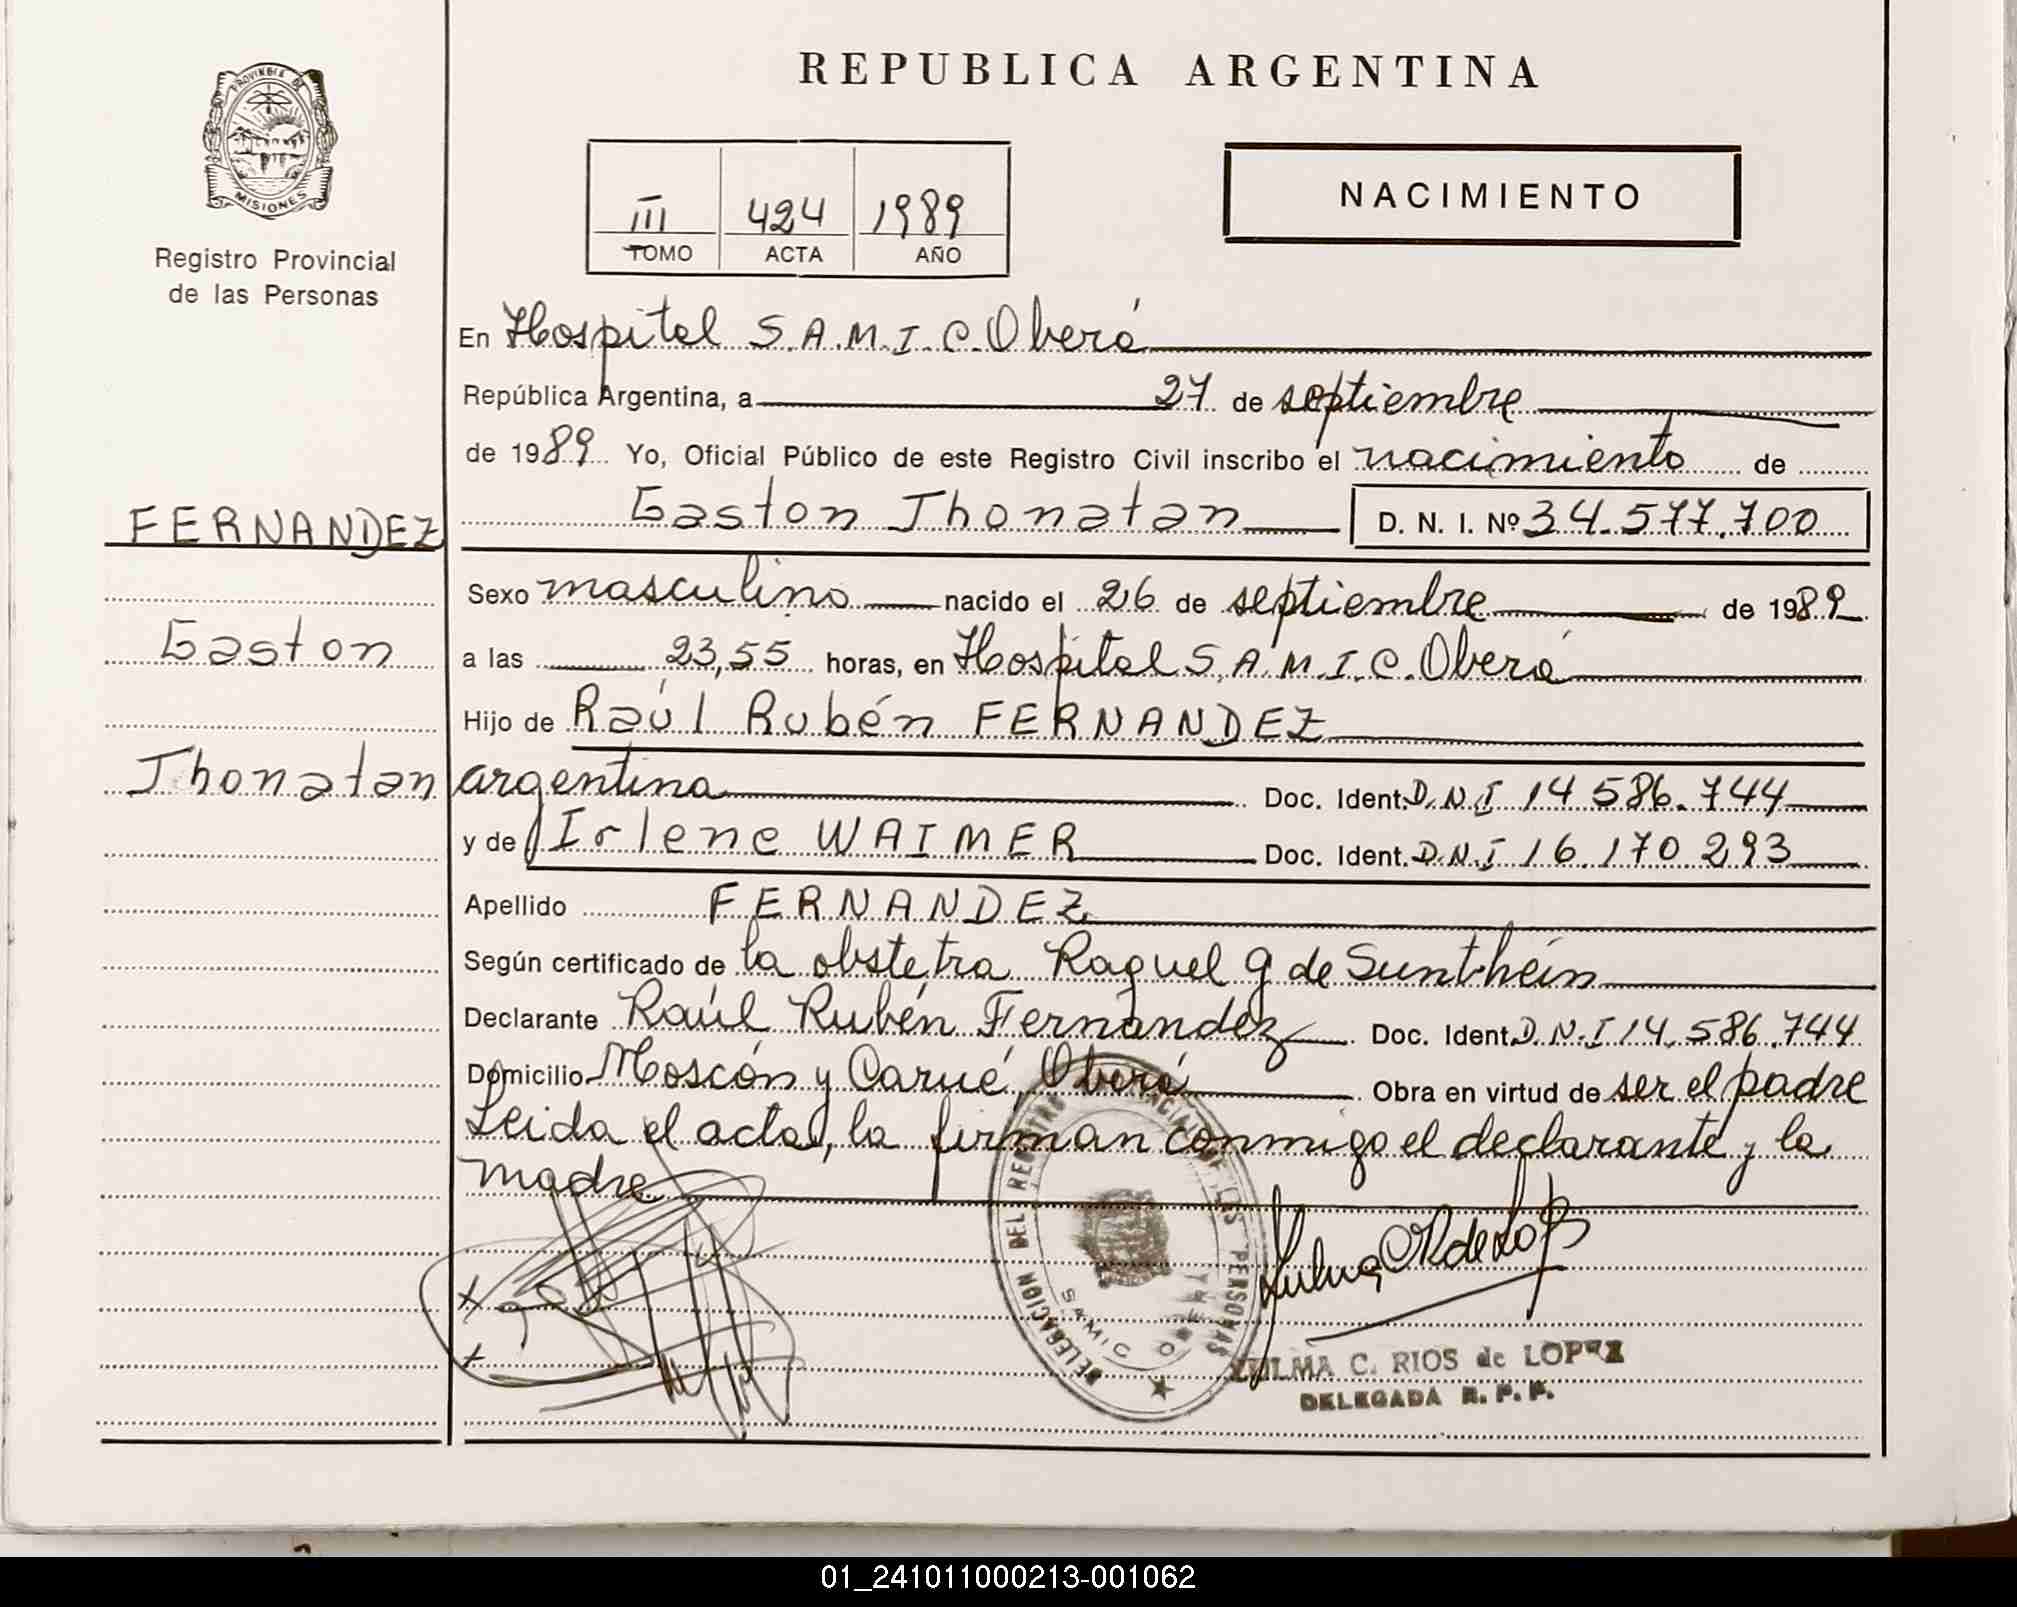 PROVINCIA DE
MISIONES
Registro Provincial
de las Personas
REPUBLICA ARGENTINA
III 424 1989
TOMO ACTA AÑO
NACIMIENTO
En Hospital S.A.M.I.C. Oberá
República Argentina, a 27 de septiembre
de 1989 Yo, Oficial Público de este Registro Civil inscribo el nacimiento de
Gaston Jhonatan D. N. I. Nº 34.577.700
FERNANDEZ
Gaston
Jhonatan
Sexo masculino nacido el 26 de septiembre de 1989
a las 23,55 horas, en Hospital S.A.M.I.C. Oberá
Hijo de Raúl Rubén FERNANDEZ
argentina Doc. Ident. D.N.I 14 586.744
y de Irlene WAIMER Doc. Ident. D.N.I 16.170 293
Apellido FERNANDEZ
Según certificado de la obstetra Raquel G de Sunthein
Declarante Raúl Rubén Fernández Doc. Ident. D.N.I 14.586.744
Domicilio Moscón y Carué, Oberá Obra en virtud de ser el padre
Leida el acta, la firman conmigo el declarante y la
madre
DELEGACION DEL REGISTRO PROVINCIAL DE LAS PERSONAS
SAMIC
ZULMA C. RIOS de LOPEZ
DELEGADA R. P. P.
01_241011000213-001062